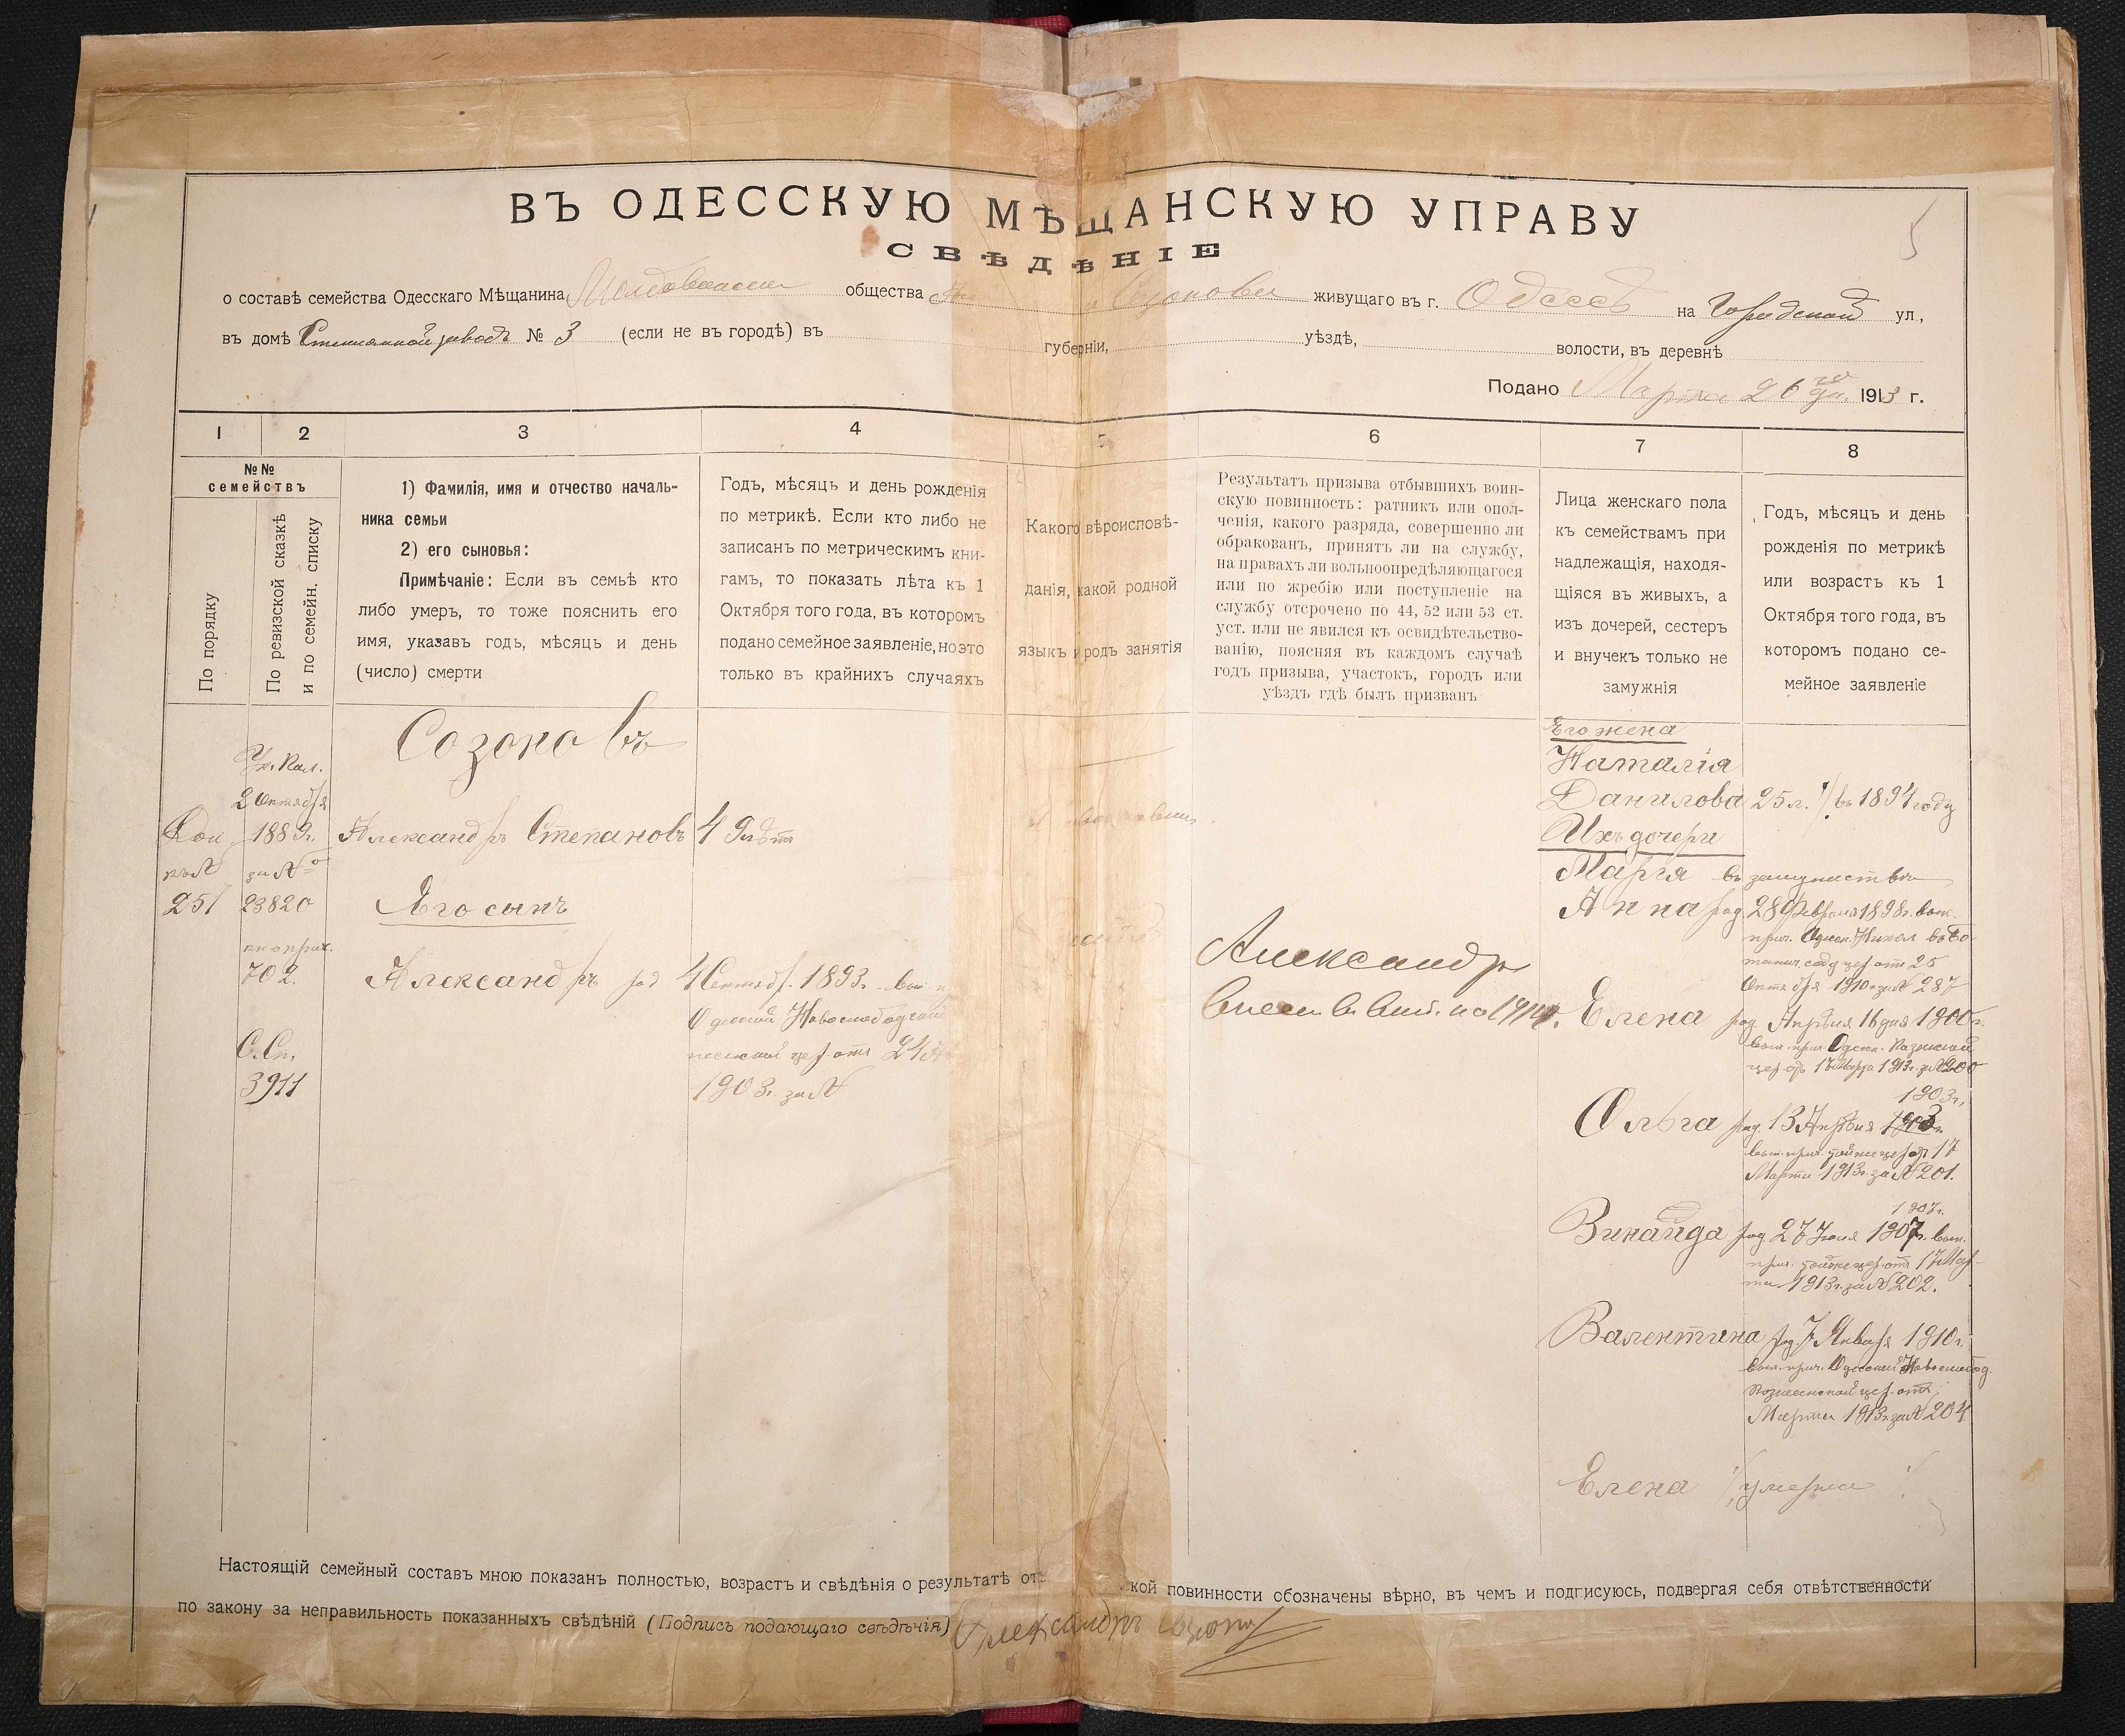 ВЪ ОДЕССКУЮ МѢЩАНСКУЮ УПРАВУ
СВѢДѢНІЕ
о составѣ семейства Одесскаго Мѣщанина общества живущаго въ г. Одессѣ на Городской ул.,
въ домѣ Стеклянной заводъ № 3 (если не въ городѣ) въ губерніи, уѣздѣ, волости, въ деревнѣ
Подано Марта 26 го дн. 1913 г.
1 2 3 4 5 6 7 8
№№
семействъ
По порядку
По ревизской сказкѣ
и по семейн. списку
1) Фамилія, имя и отчество началь-
ника семьи
2) его сыновья:
Примѣчаніе: Если въ семьѣ кто
либо умеръ, то тоже пояснить его
имя, указавъ годъ, мѣсяцъ и день
(число) смерти
Годъ, мѣсяцъ и день рожденія
по метрикѣ. Если кто либо не
записанъ по метрическимъ кни-
гамъ, то показать лѣта къ 1
Октября того года, въ которомъ
подано семейное заявленіе, но это
только въ крайнихъ случаяхъ
Какого вѣроисповѣ-
данія, какой родной
языкъ и родъ занятія
Результатъ призыва отбывшихъ воин-
скую повинность: ратникъ или опол-
ченія, какого разряда, совершенно ли
обракованъ, принятъ ли на службу,
на правахъ ли вольноопредѣляющагося
или по жребію или поступленіе на
службу отсрочено по 44, 52 или 53 ст.
уст. или не явился къ освидѣтельство-
ванію, поясняя въ каждомъ случаѣ
годъ призыва, участокъ, городъ или
уѣздъ гдѣ былъ призванъ
Лица женскаго пола
къ семействамъ при
надлежащія, находя-
щіяся въ живыхъ, а
изъ дочерей, сестеръ
и внучекъ только не
замужнія
Годъ, мѣсяцъ и день
рожденія по метрикѣ
или возрастъ къ 1
Октября того года, въ
которомъ подано се-
мейное заявленіе
Созоновъ
Ук. Каз.
2 Октября
1889г.
за №
23820
къ №
251
702.
С. Сп.
3911
Александръ Степановъ
Его сынъ
Александръ род 4 Сентяб. 1893г.
Одесской Новослободской
цер. отъ 24
1903г. за №
Александр
Его жена
Наталія
Данилова 25 л. въ 1894 году
Ихъ дочери
Марія въ замужествѣ
Анна род. 28 Февраля 1898г. вып.
прич. Одесск. Никол въ Бо-
танич. саду цер отъ 25
Октября 1910г. за № 287
Елена род. Апрѣля 16 дня 1900г.
вып. прич. Одесск. Казанской
цер. отъ 17 Марта 1913г. за № 200
1903г.
Ольга род. 13 Апрѣля 1903г.
вып. прич. той же цер. отъ 17
Марта 1913г. за № 201.
1907г.
Зинаида род. 27 Іюля 1907г. вып.
прич. той же цер. отъ 17 Мар-
та 1913г. за № 202.
Валентина род. 7 Января 1910г.
вып. прич. Одесской Новослобод.
Вознесенской цер. отъ
Марта 1913г. за № 204
Елена умерла
Настоящій семейный составъ мною показанъ полностью, возрастъ и свѣдѣнія о результатѣ повинности обозначены вѣрно, въ чемъ и подписуюсь, подвергая себя отвѣтственности
по закону за неправильность показанныхъ свѣдѣній (Подпись подающаго свѣдѣнія) Александръ Созоновъ